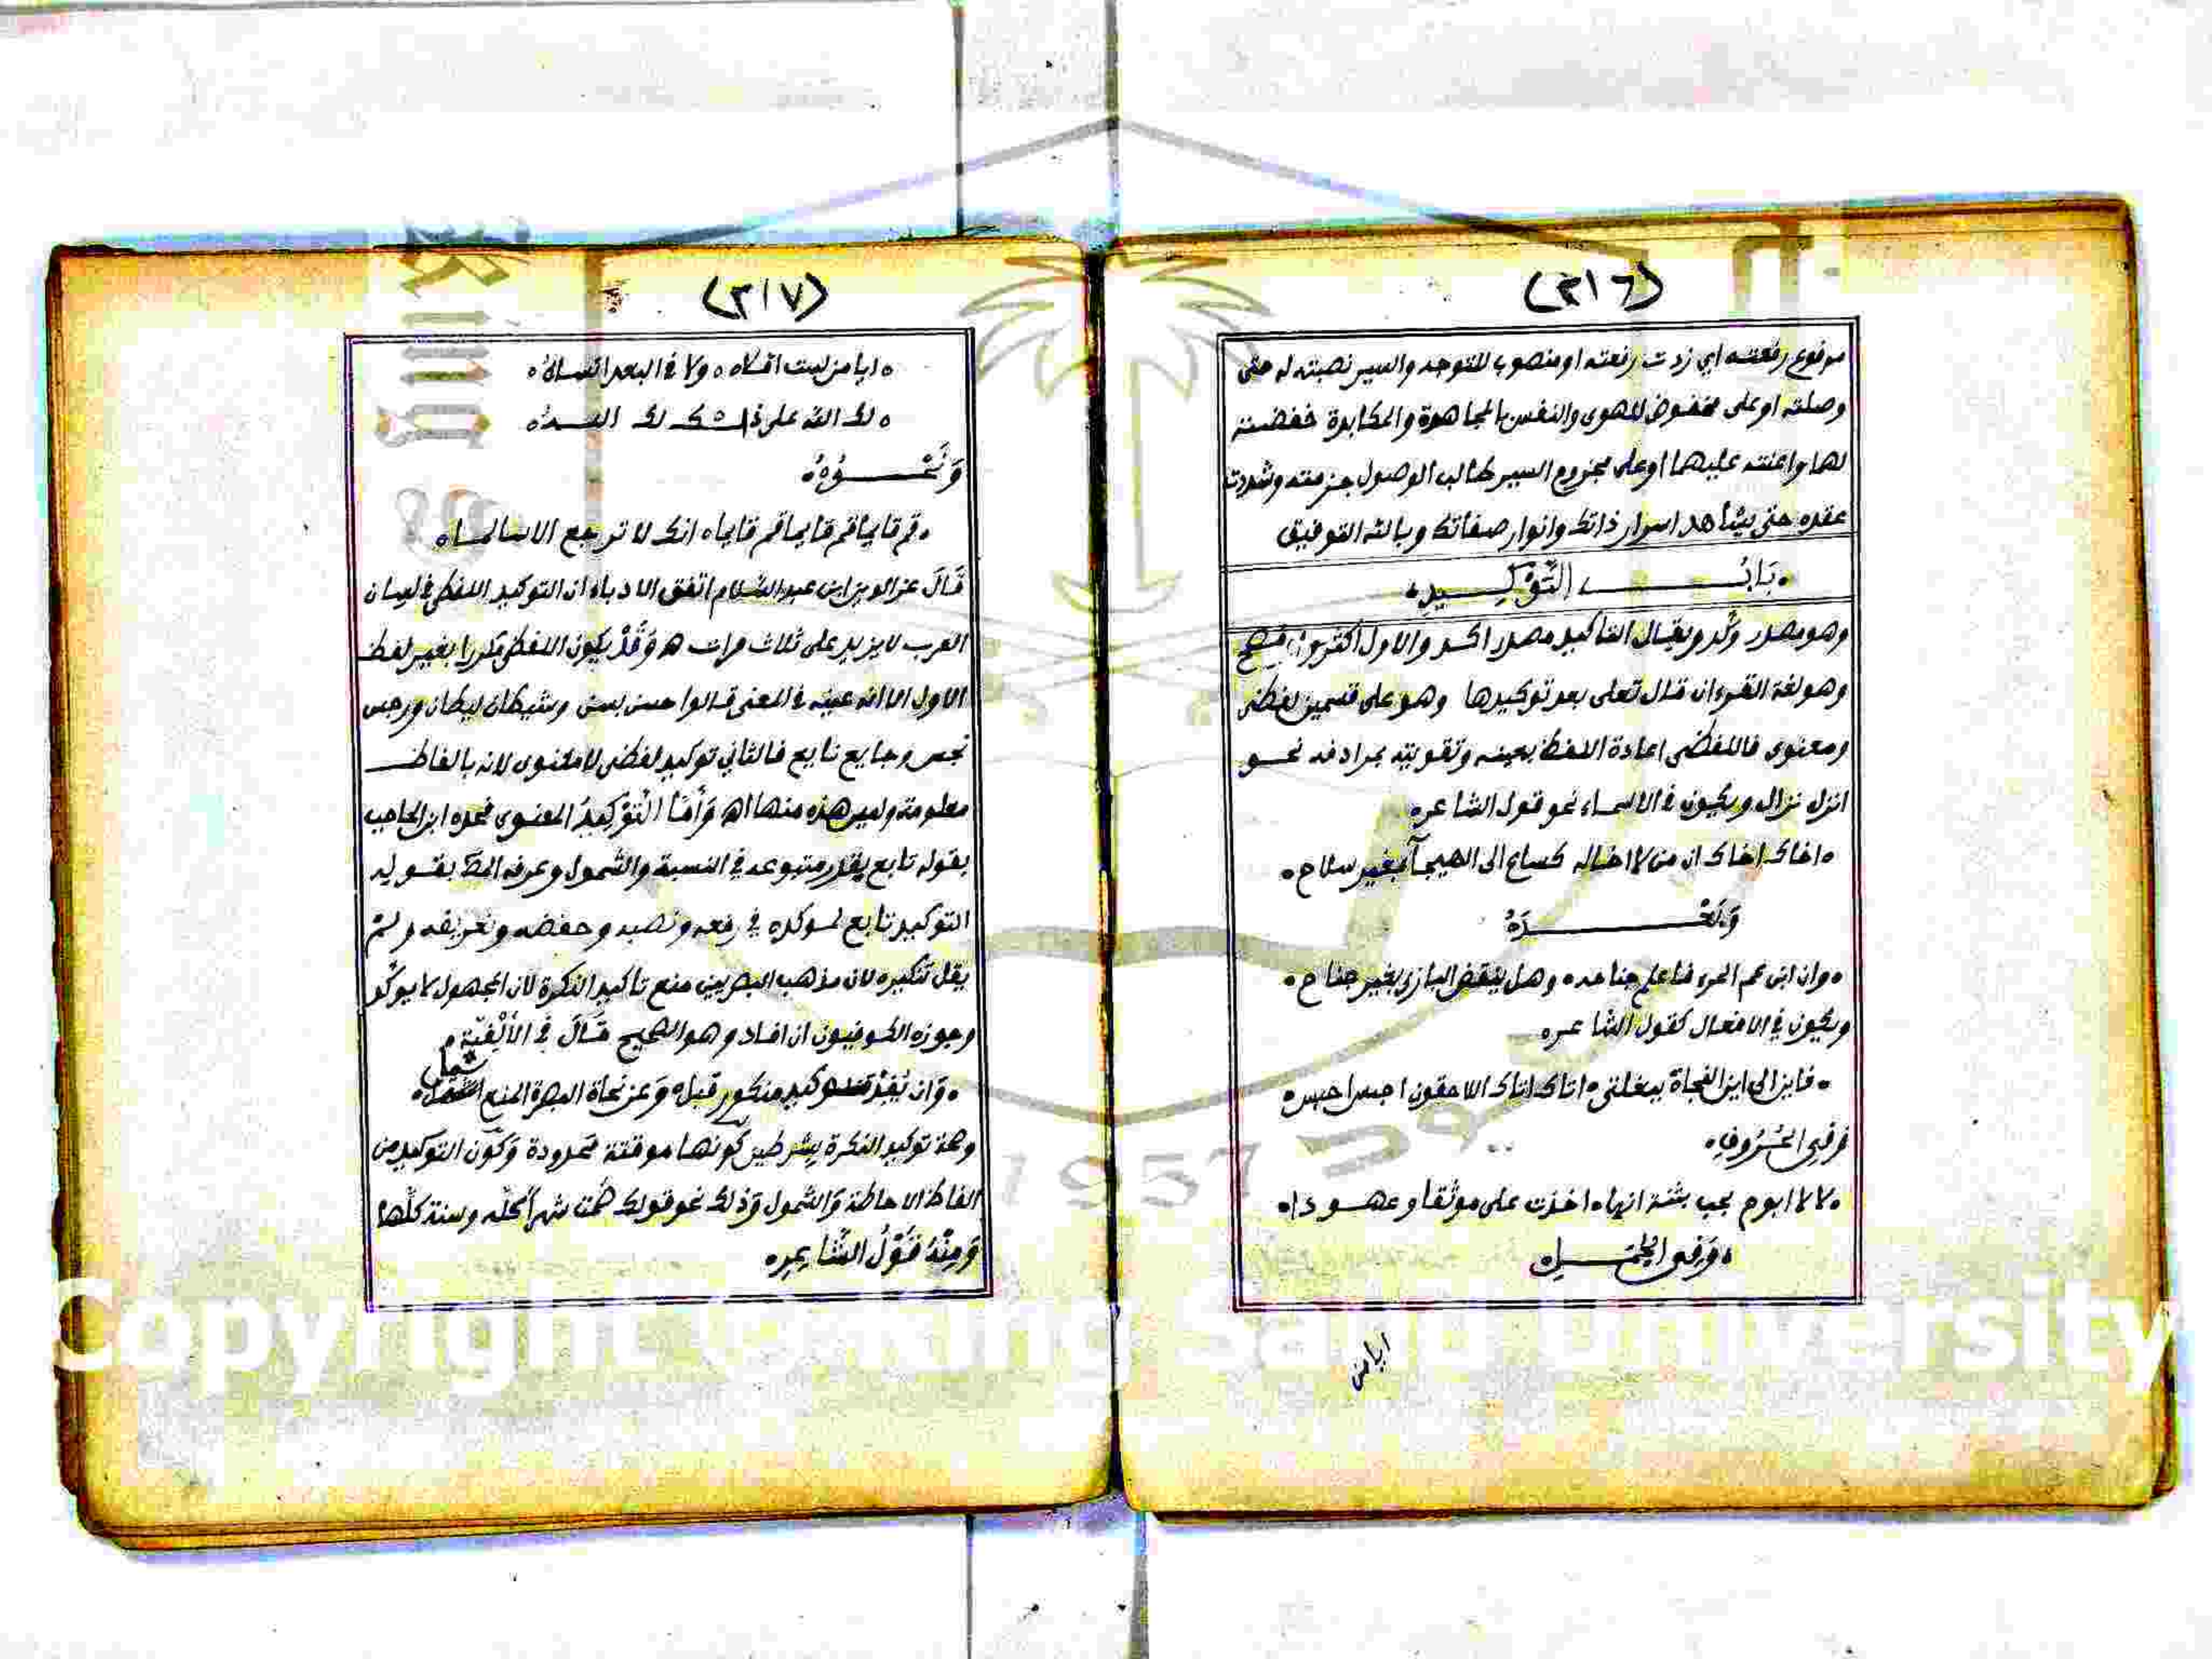 (٣١٦)
مرفوع رفعته اي زدت رفعته او منصوب للتوجه والسير نصبته له حتى
وصلته او على مخفوض للهوى والنفس بالمجاهدة والمكابرة خفضته
لها واعنته عليهما او على مجزوم السير طالب الوصول جزمته وشددت
عقده حتى يشاهد اسرار ذاتك وانوار صفاتك وبالله التوفيق
بَابُ التَّوْكِيدِ
وهو مصدر وكّد ويقال التاكيد مصدر اكد والاول اكثر وافصح
وهو لغة القرءان قال تعلى بعد توكيدها وهو على قسمين لفظي
ومعنوى فاللفظى اعادة اللفظ بعينه وتقويته بمرادفه نحو
انزل نزال ويكون فى الاسماء نحو قول الشاعره
اخاك اخاك ان من لا اخاله كساع الى الهيجآ بغير سلاح
وَبَعْدَهُ
وان ابن عم المرء فاعلم جناحه وهل ينهض البازي بغير جناح
ويكون في الافعال كقول الشاعره
فاين الى اين النجاة ببغلتى اتاك اتاك اللاحقون احبس احبس
وَفِي الحُرُوفِ
لا لا ابوح بحب بثنة انها اخذت على مواثقا وعهودا
وَفِى الجُمَلِ
ايا من
(٣١٧)
ايا من لست اقلاه ولا في البعد انساه
لك الله على ذاك لك الله
وَنَحْوُهُ
قم قايما قم قايما قم قايما انك لا ترجع الا سالما
قَالَ عز الدين ابن عبد السَّلام اتفق الادباء ان التوكيد اللفظي في لسان
العرب لا يزيد على ثلاث مرات هـ وَقَدْ يكون اللفظى مكررا بغير لفظ
الاول الا انه عينه في المعنى قالوا حسن بسن وشيطان ليطان ورجس
نجس وجايع نايع فالثاني توكيد لفظى لا معنوى لانه بالفاظ
معلومة وليس هذه منها اهـ وَأَمَّا التَّوْكِيدُ المعنوى فحده ابن الحاجب
بقوله تابع يقرر متبوعه في النسبة والشمول وعرفه المص بقوله
التوكيد تابع لموكده في رفعه ونصبه وخفضه وتعريفه ولم
يقل تنكيره لان مذهب البصريين منع تاكيد النكرة لان المجهول لا يوكد
وجوزه الكوفيون ان افاد وهو الصحيح قَالَ فِي الأَلْفِيّة
وَان يُفِدْ توكيد منكور قبل وَعن نحاة البصرة المنع شمل
توكيد النكرة بشرطين كونها موقتة محدودة وَكون التوكيد من
الفاظ الاحاطة وَالشمول وَذلك نحو قولك صمت شهرا كله وسنة كلها
وَمِنْهُ قَوْلُ الشَّاعِرِه